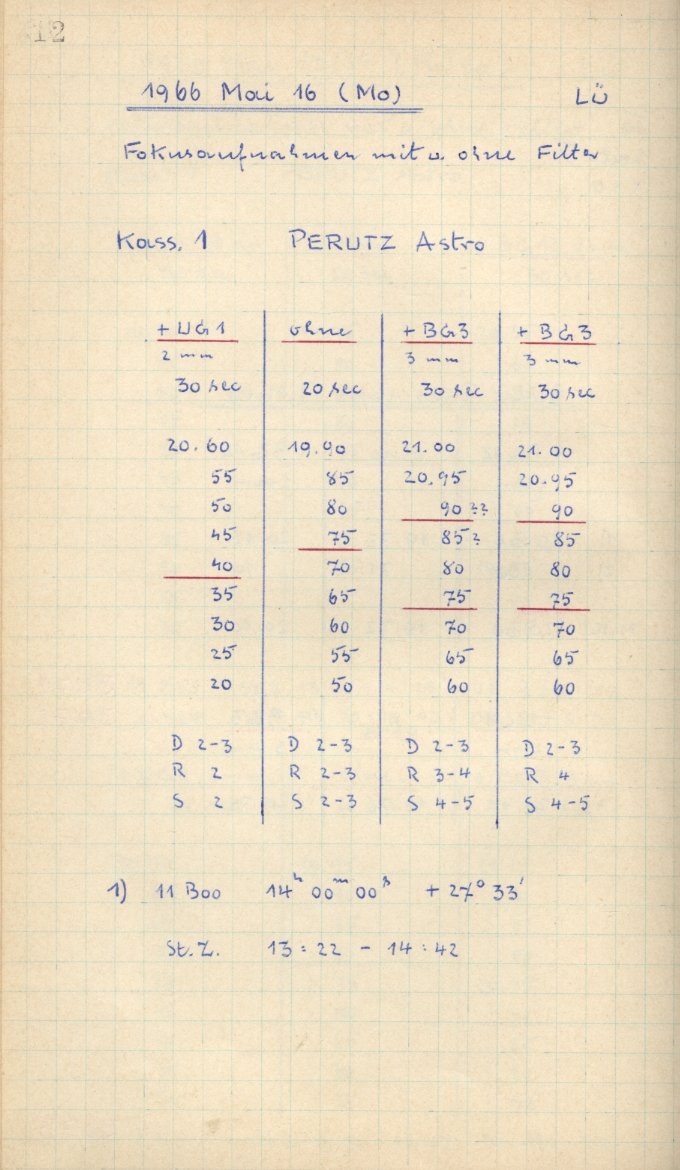 12
1966 Mai 16 (Mo) LÜ
Fokusaufnahmen mit u. ohne Filter
Kass. 1 PERUTZ Astro
+ UG1 ohne + BG3 + BG3
2 mm 3 mm 3 mm
30 sec 20 sec 30 sec 30 sec
20.60 19.90 21.00 21.00
55 85 20.95 20.95
50 80 90 ?? 90
45 75 85 ? 85
40 70 80 80
35 65 75 75
30 60 70 70
25 55 65 65
20 50 60 60
D 2-3 D 2-3 D 2-3 D 2-3
R 2 R 2-3 R 3-4 R 4
S 2 S 2-3 S 4-5 S 4-5
1) 11 Boo 14h 00m 00s + 27° 33'
St.Z. 13:22 - 14:42